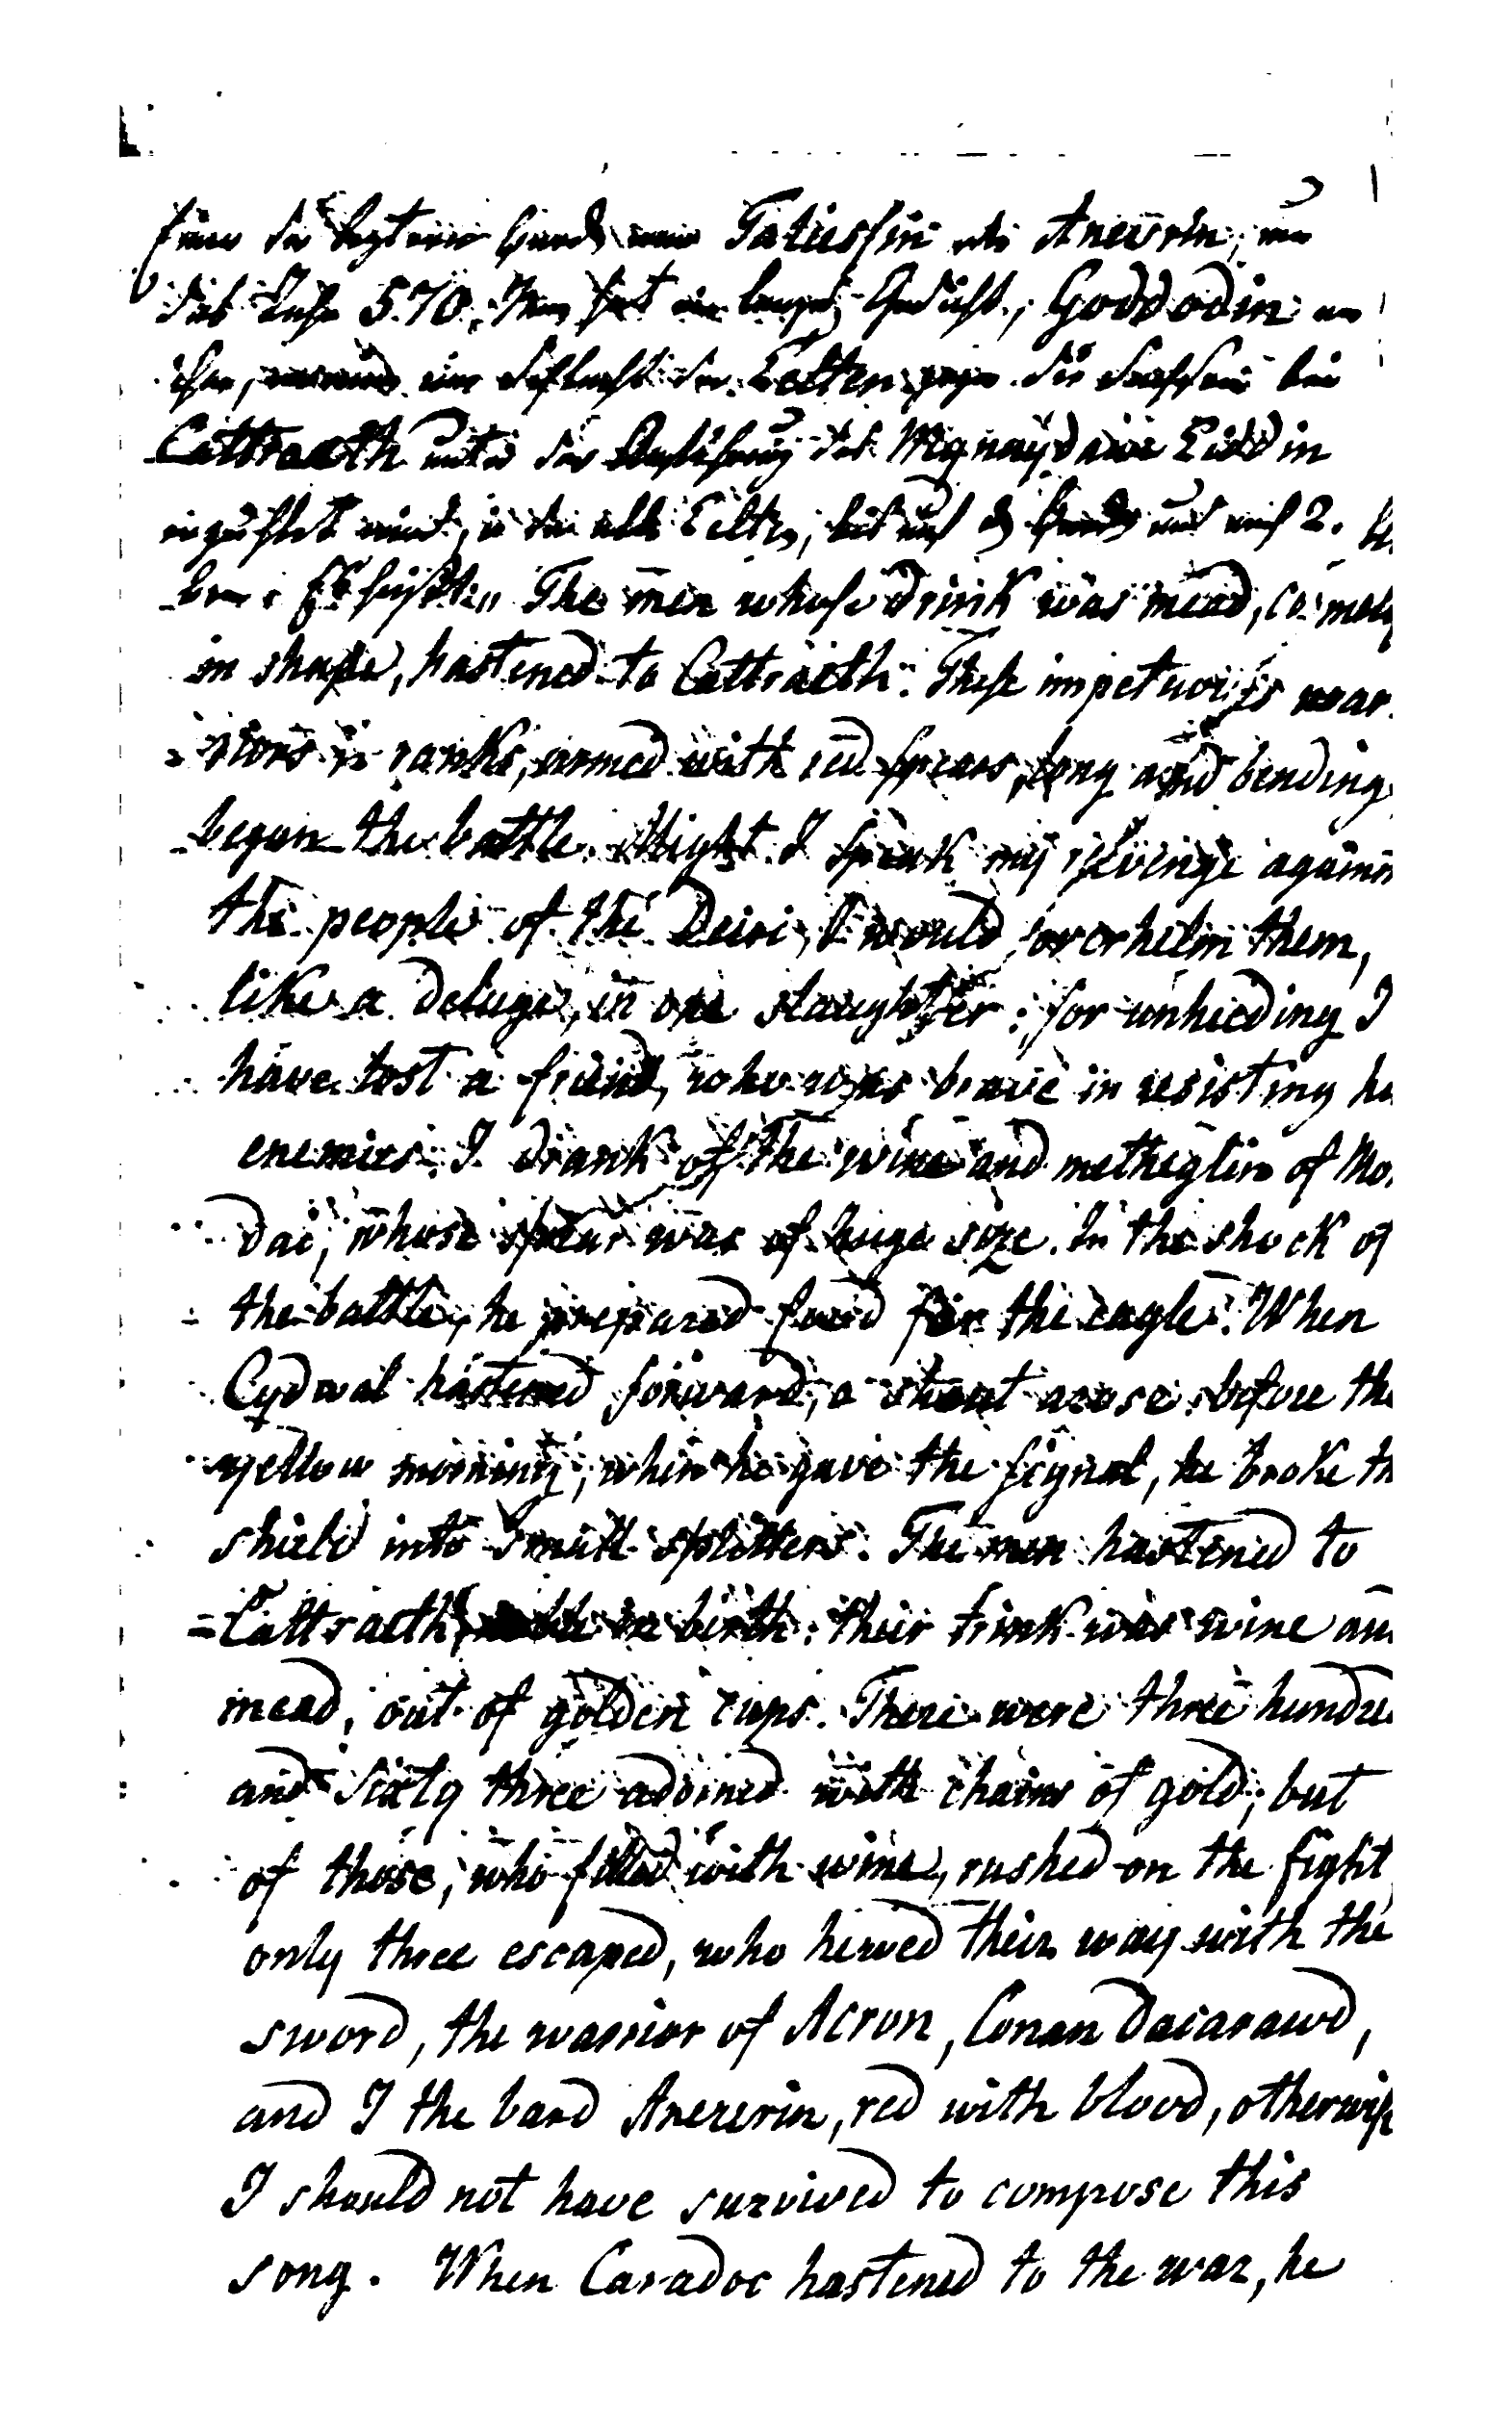 Einer der Bards war Taliessin oder Aneurin, um
das Jahr 570. Man hat ein langes Gedicht, Gododin von
ihm, eine Schlacht der Celten gegen die Sachsen bei
Cattraeth unter der Anführung des Mynaydawc Eiddin
wird, in der alle Celten, bis auf den und noch 2.
Es heißt: „The men whose drink was mead, comely
in shape, hastened to Cattraeth. These impetuous war
=riors in ranks, armed with red spears, long and bending
began the battle. Might I speak my revenge again
the people of the Deiri, I would overhelm them,
like a deluge, in one slaughter: for unheeding I
have lost a friend, who was brave in resisting his
enemies. I drank of the wine and metheglin of Mo.
dai, whose spear was of huge size. In the shock of
the battle, he prepared food for the eagle. When
Cydwal hastened forward, a shout arose: before the
yellow morning, when he gave the signal, he broke th
shield into small splitters. The men hastened to
=Cattraeth, noble in birth: their drink was wine an
mead, out of golden cups. There were three hundre
and sixty three adorned with chains of gold; but
of those, who filled with wine, rushed on the fight
only three escaped, who hewed their way with the
sword, the warrior of Acron, Conan Dacarawd,
and I the bard Aneurin, red with blood, otherwise
I should not have survived to compose this
song. When Caradoc hastened to the war, he